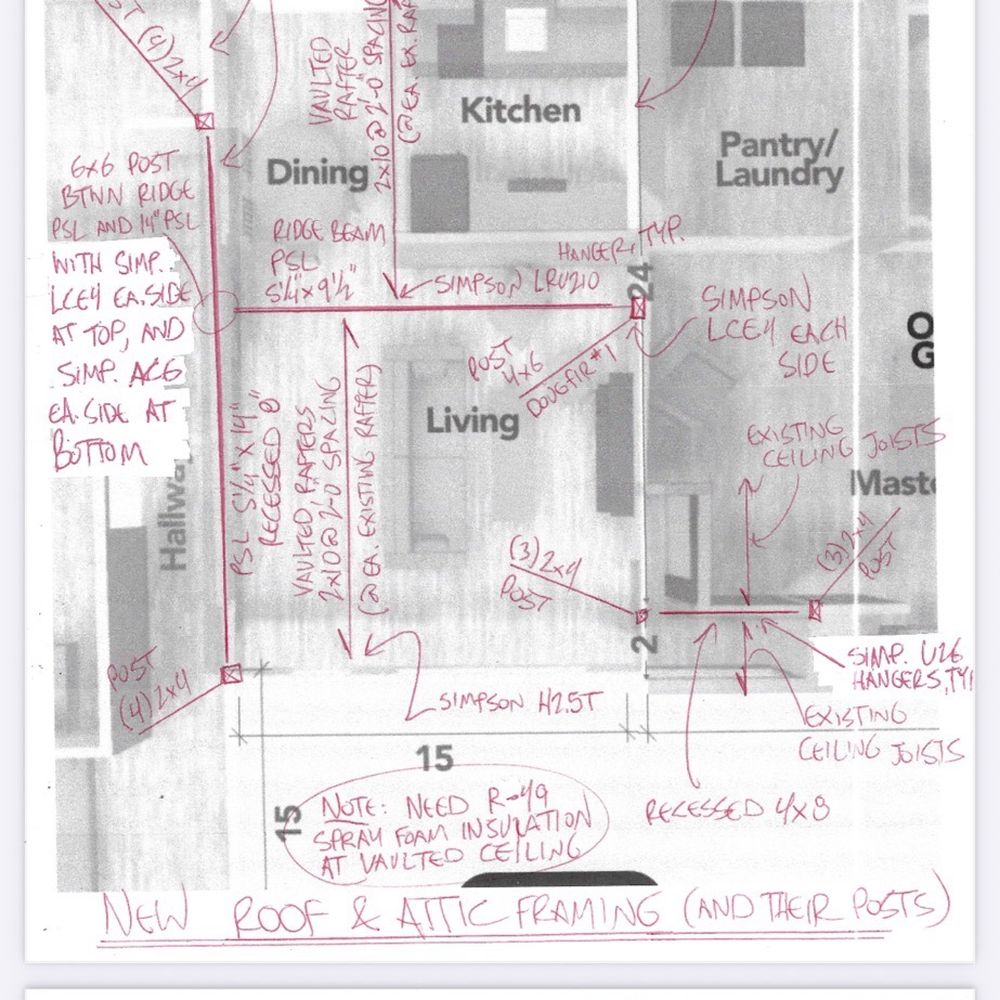 (4) 2x4
VAULTED
RAFTER
2x10 @ 2'-0 SPACING
(@ EA. EX. RAF
Kitchen
Pantry/
Laundry
Dining
6x6 POST
BTWN RIDGE
PSL AND 14" PSL
WITH SIMP.
LCE4 EA. SIDE
AT TOP, AND
SIMP. AC6
EA. SIDE AT
BOTTOM
RIDGE BEAM
PSL
5 1/4" x 9 1/2"
HANGER, TYP.
SIMPSON LRU210
24
SIMPSON
LCE4 EACH
SIDE
POST
4x6
DOUG FIR #1
O
G
Living
PSL 5 1/4" x 14"
RECESSED 8"
VAULTED RAFTERS
2x10 @ 2'-0 SPACING
(@ EA. EXISTING RAFTER)
EXISTING
CEILING JOISTS
Maste
Hallwa
(3) 2x4
POST
(3) 2x4
POST
2
POST
(4) 2x4
SIMP. U26
HANGERS, TY
SIMPSON H2.5T
EXISTING
CEILING JOISTS
15
15
NOTE: NEED R-49
SPRAY FOAM INSULATION
AT VAULTED CEILING
RECESSED 4x8
NEW ROOF & ATTIC FRAMING (AND THEIR POSTS)